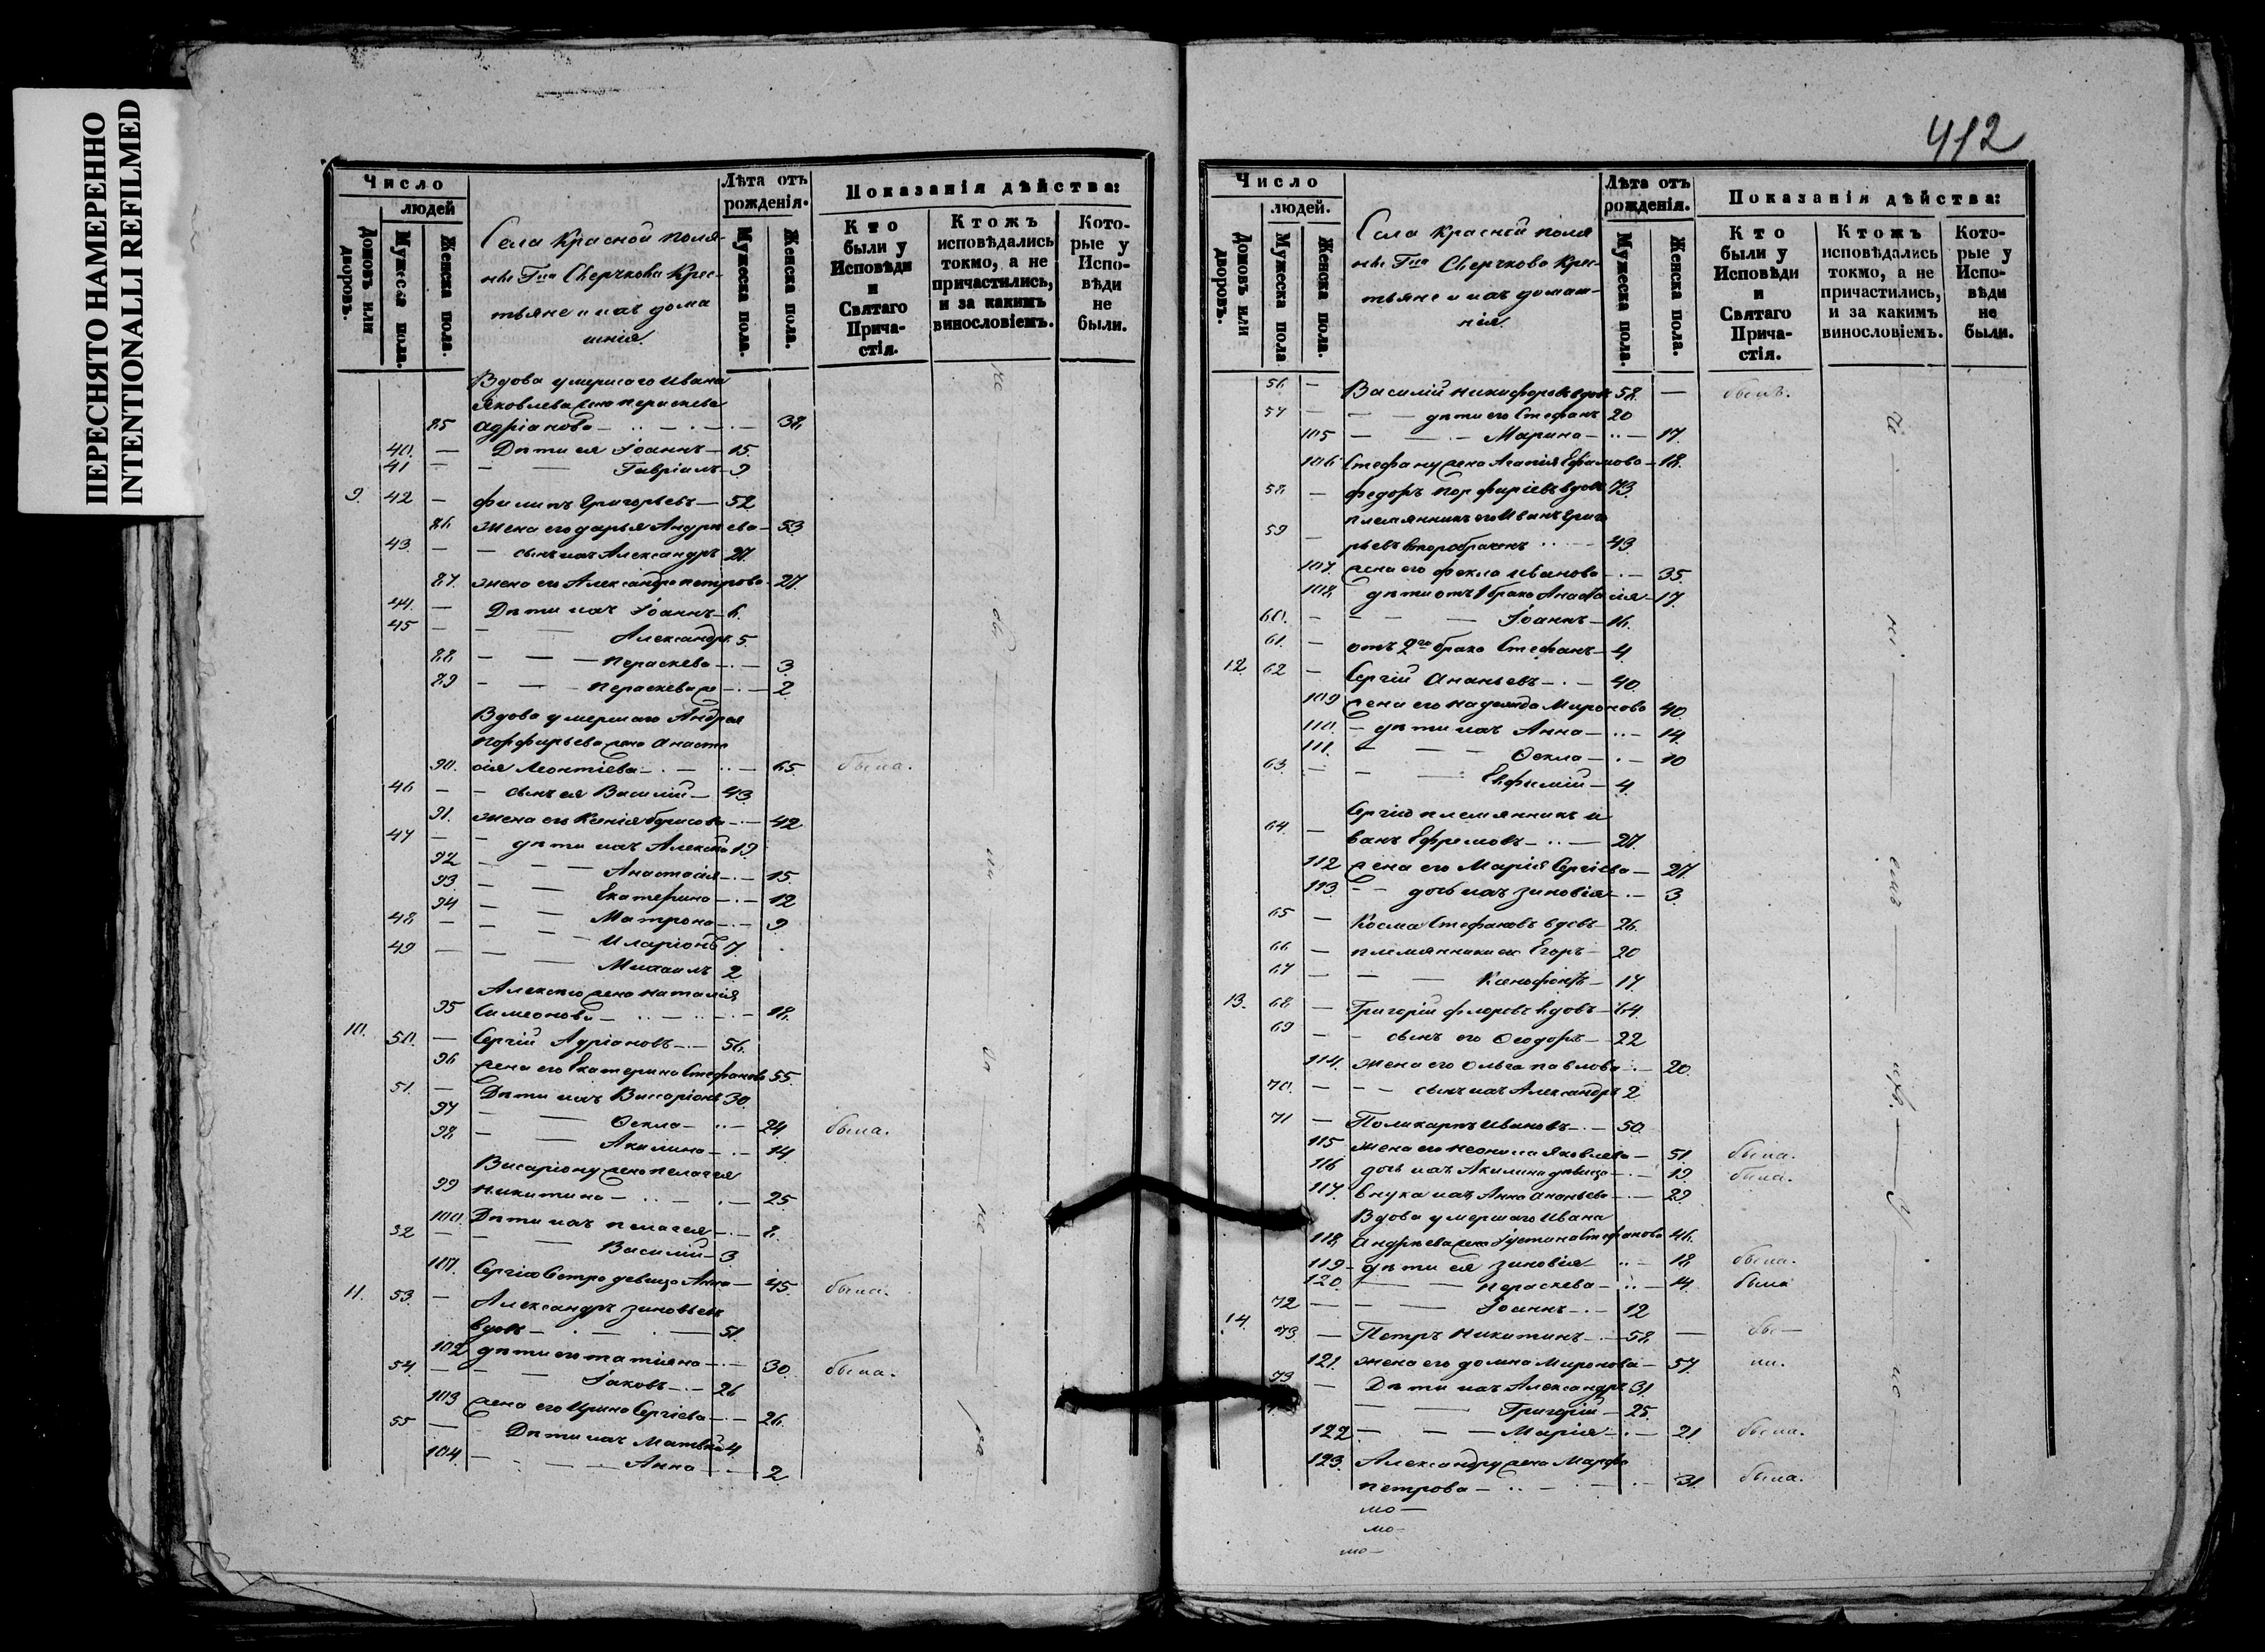 ПЕРЕСНЯТО НАМЕРЕННО
INTENTIONALLI REFILMED
Число
людей
Домовъ или дворовъ.
Мужеска пола.
Женска пола.
Села Красной поля-
ны Гна Сверчкова Крес-
тьяне и ихъ дома
шнія.
Лѣта отъ
рожденія.
Мужеска пола.
Женска пола.
Показанія дѣйства:
Кто
были у
Исповѣди
и
Святаго
Прича-
стія.
Ктожъ
исповѣдались
токмо, а не
причастились,
и за какимъ
винословіемъ.
Кото-
рые у
Испо-
вѣди
не
были.
Вдова умершаго Ивана
Яковлева жена Параскева
85 Адріанова 38
40. — Дѣти ея Іоаннъ — 15.
41 — Гавріилъ — 9
9. 42 — Филипъ Григорьевъ — 52
86 жена его Дарья Андреева — 53
43. — сынъ ихъ Александръ 27.
87. жена его Александра Петрова — 27.
44. — Дѣти ихъ Іоаннъ — 6.
45 — Александръ 5
88 — Параскева — 3.
89 — Параскева — 2
Вдова умершаго Андрея
Порфирьева жена Анаста
90. сія Леонтіева — 65. была.
46 — сынъ ея Василій — 43
91. жена его Ксенія Борисова — 42
47 — дѣти ихъ Алексѣй 19
92 — Анастасія — 15.
93. — Екатерина — 12
94 — Матрона — 9
48. — Иларіонъ 7.
49 — Михаилъ 2
Алексѣю жена Наталія
95 Симеонова — 18.
10. 50. — Сергій Адріановъ — 56.
96 жена его Екатерина Стефанова 55
51. — Дѣти ихъ Висаріонъ 30.
97 — Ѳекла — 24 была.
98. — Акилина — 14
Висаріону жена Пелагея
99 Никитина — 25
100. Дѣти ихъ Пелагея — 8.
52 — Василій — 3
101. Сергія Сестра девица Анна — 45. была.
11. 53. — Александръ Зиновьевъ
вдовъ — 51
102 дѣти его Татіана — 30. была.
54. — Іаковъ — 26
103 жена его Ирина Сергіева — 26.
55 — Дѣти ихъ Матвей 4
104. — Анна — 2
412
Число
людей.
Домовъ или дворовъ.
Мужеска пола
Женска пола.
Села Красной поля
ны Гна Сверчкова Крес-
тьяне и ихъ домаш-
нія.
Лѣта отъ
рожденія.
Мужеска пола.
Женска пола.
Показанія дѣйства:
Кто
были у
Исповѣди
и
Святаго
Прича-
стія.
Ктожъ
исповѣдались
токмо, а не
причастились,
и за какимъ
винословіемъ.
Кото-
рые у
Испо-
вѣди
не
были.
56 — Василій Никифоровъ вдовъ 58. — былъ.
57 — дѣти его Стефанъ 20
105 — Марина — 17.
106 Стефану жена Агапія Ефимова — 18.
58. — Федоръ Порфиріевъ вдовъ 73.
племянникъ его Иванъ Григо
59 — рьевъ второбраченъ — 43
107. жена его Фекла Иванова — 35.
108. дѣти отъ 1 брака Анастасія — 17.
60. — Іоаннъ — 16.
61. — отъ 2го брака Стефанъ — 4
12. 62 — Сергій Ананьевъ — 40.
109 жена его Надежда Миронова 40.
110. — дѣти ихъ Анна — 14
111. — Ѳекла — 10
63. — Евфимій — 4.
Сергію племянникъ И
64. — ванъ Ефремовъ — 27.
112 жена его Марія Сергіева — 27
113 — дочь ихъ Зиновія — 3.
65 — Косма Стефановъ вдовъ — 26.
66 — племянники ея Егоръ — 20
67 — Ксенофонтъ — 17.
13. 68. — Григорій Флоровъ вдовъ — 64.
69 — сынъ его Ѳеодоръ — 22
114. жена его Ольга Павлова — 20.
70. — сынъ ихъ Александръ 2
71 — Поликарпъ Ивановъ — 50.
115 жена его Неонила Яковлева — 51 была.
116 дочь ихъ Акилина дѣвица — 19. была.
117. внука ихъ Анна Ананьева — 29
Вдова умершаго Ивана
118. Андреева жена Іустина Стефанова 46.
119 — дѣти ея Зиновія — 18. была.
120. — Параскева — 14. была
72 — Іоаннъ — 12
14. 73. — Петръ Никитинъ — 58. — бы —
121. жена его Домна Миронова — 57. ли.
73 — Дѣти ихъ Александръ 31.
— Григорій — 25.
122 — Марія — 21 была.
123. Александру жена Марфа
Петрова — 31. была.